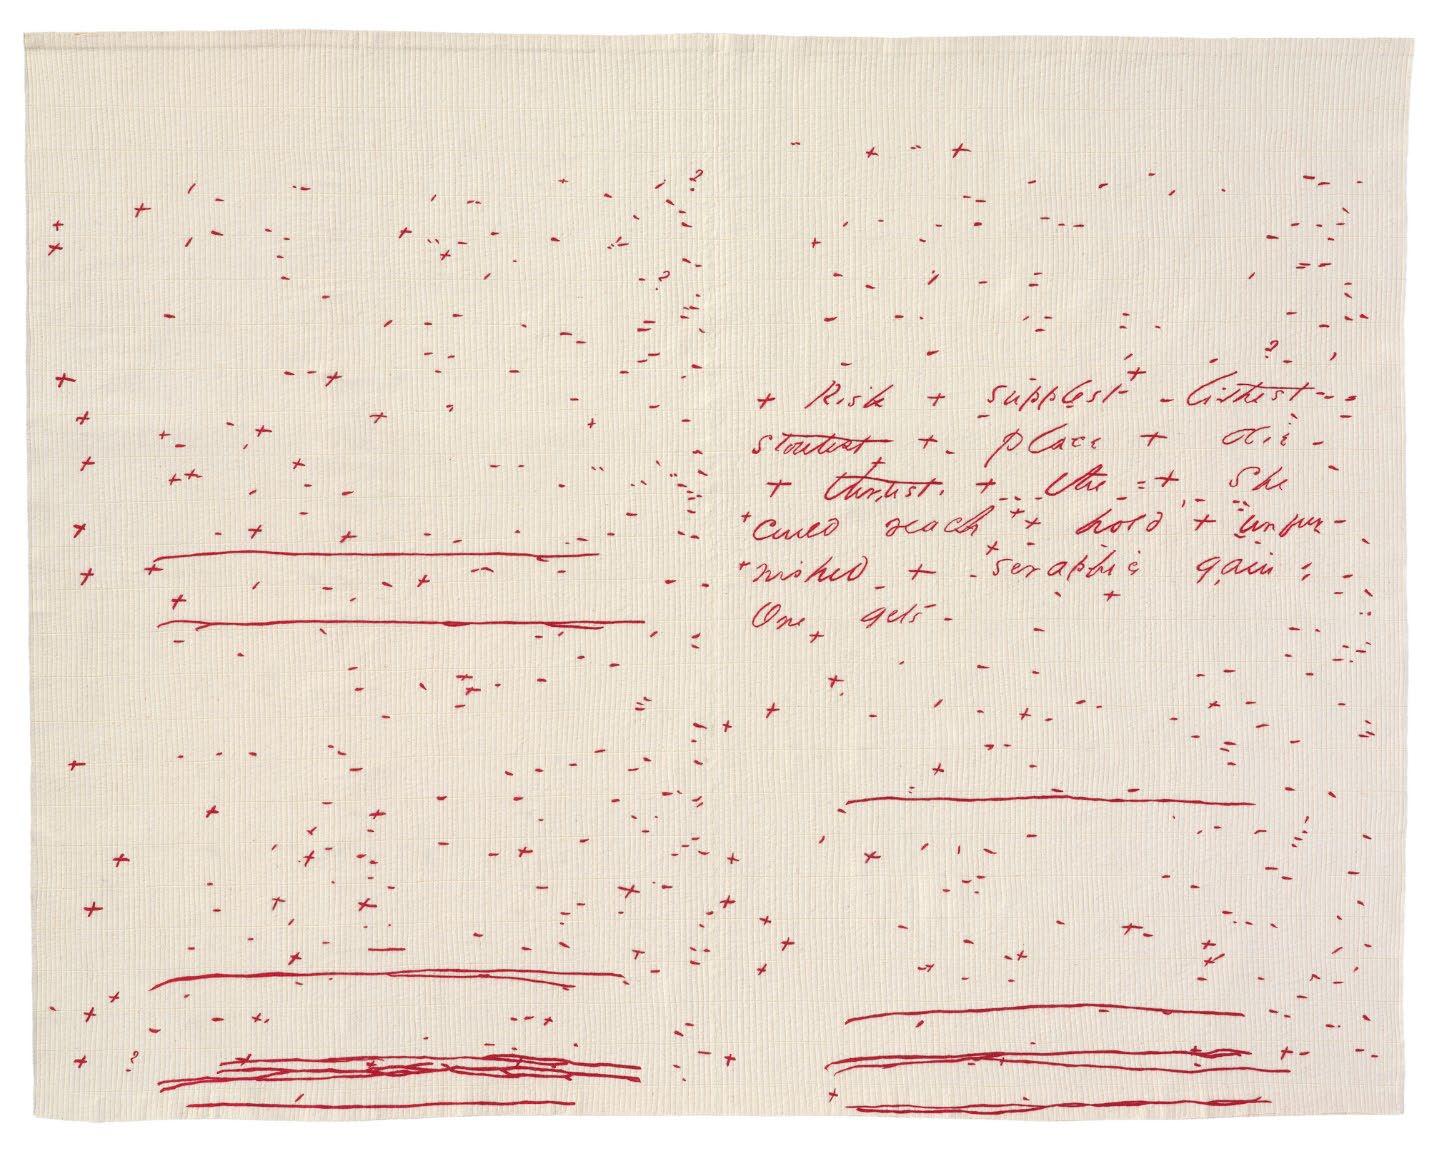 + Risk + supplest + - lithest -
stoutest + place + die -
+ thrust. + the - + She
+ could reach + + hold + unfur-
+ nished + seraphic gain :
One + gets -